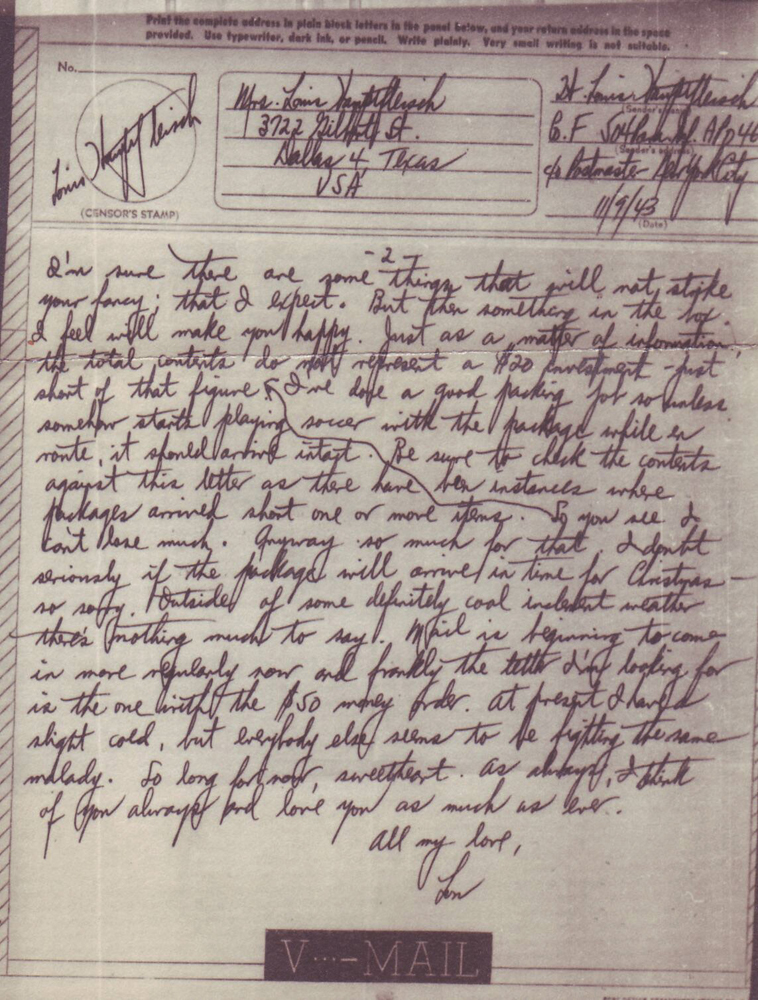 Print the complete address in plain block letters in the panel below, and your return address in the space
provided. Use typewriter, dark ink, or pencil. Write plainly. Very small writing is not suitable.
No.
Mrs. Louis
3722 St.
Dallas 4, Texas
USA
Lt. Louis
(Sender's name)
APO 46
(Sender's address)
c/o Postmaster New York City
11/9/43
(Date)
Louis
(CENSOR'S STAMP)
- 2 -
I'm sure there are some things that will not strike
your fancy; that I expect. But then something in the box
I feel will make you happy. Just as a matter of information,
the total contents do not represent a $20 investment - just
short of that figure. I've done a good packing job so unless
somehow starts playing soccer with the package while en
route, it should arrive intact. Be sure to check the contents
against this letter as there have been instances where
packages arrived short one or more items. So you see I
can't lose much. Anyway so much for that. I doubt
seriously if the package will arrive in time for Christmas -
so sorry. Outside of some definitely cool inclement weather
there's nothing much to say. Mail is beginning to come
in more regularly now and frankly the letter I'm looking for
is the one with the $50 money order. At present I have a
slight cold, but everybody else seems to be fighting the same
malady. So long for now, sweetheart. As always, I think
of you always and love you as much as ever.
All my love,
Lou
V···—MAIL